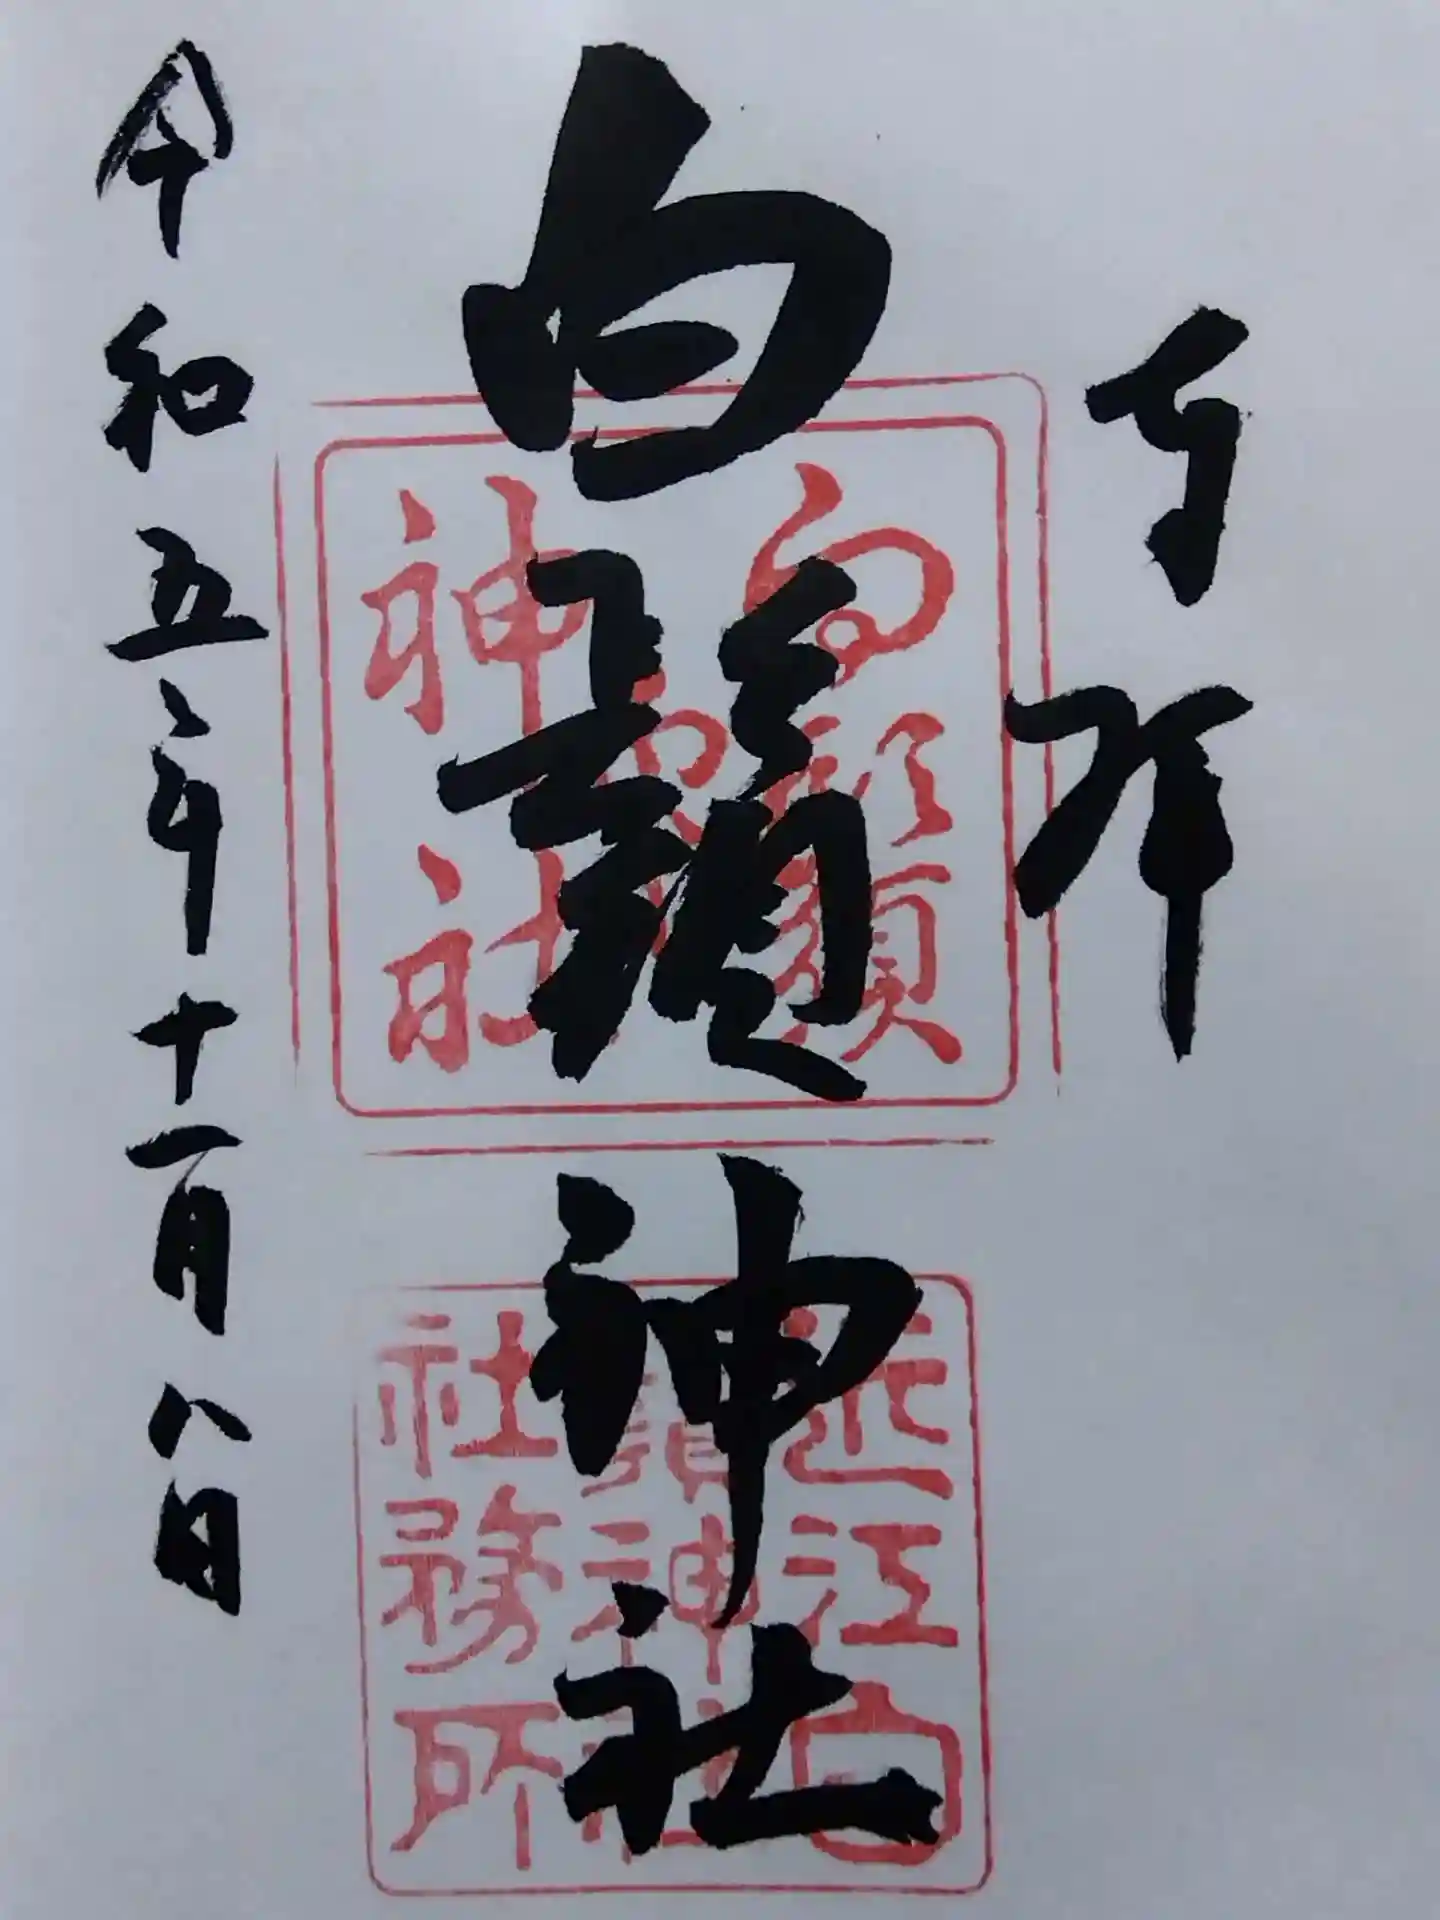 奉拝
白鬚神社
令和五年十一月八日
白鬚
神社
近江白
鬚神社
社務所